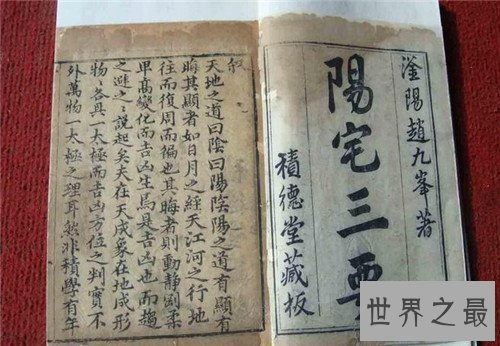 滏陽趙九峯著
陽宅三要
積德堂藏板
叙
天地之道曰陰曰陽陰陽之道有顯有
晦其顯者如日月之經天江河之行地
往而復周而徧也其晦者則動靜剛柔
卑高變化而吉凶生焉具吉凶也而趨
之避之〻說起矣夫在天成象在地成形
物〻各具一太極而吉凶方位之判實不
外萬物一太極之理耳然非積學有年
世界之最